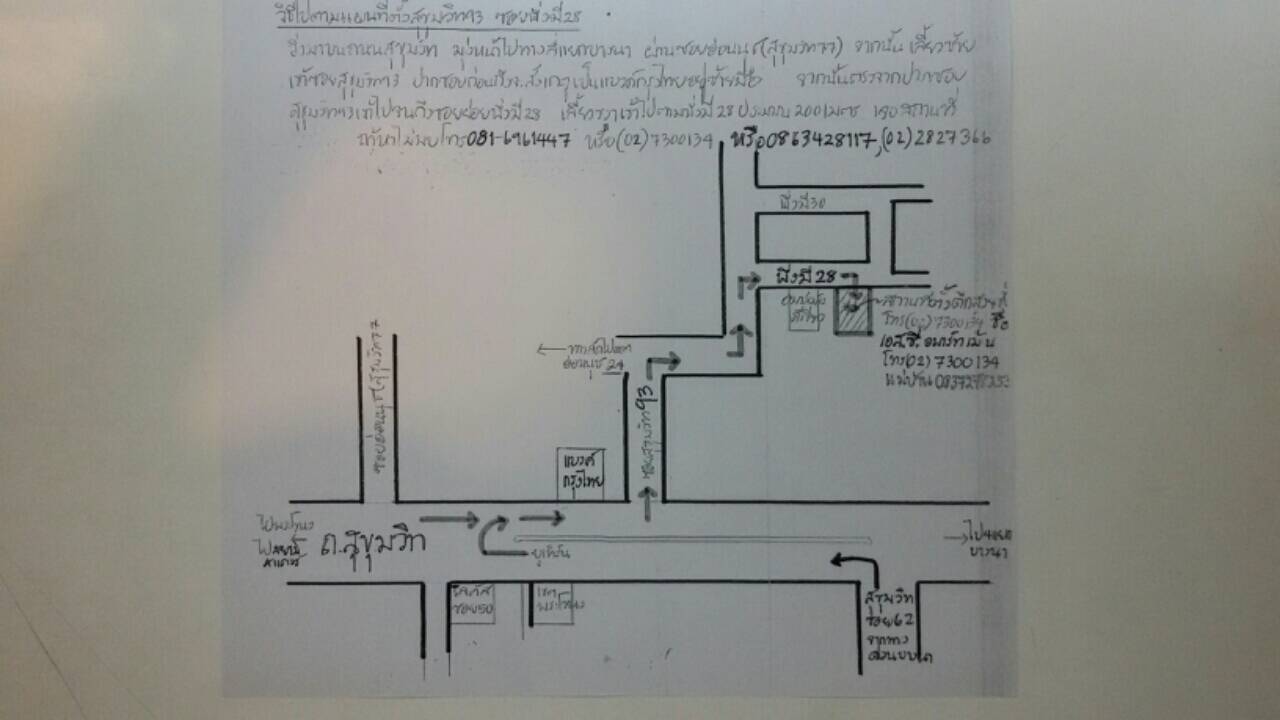 วิธีไปตามแผนที่ตั้งสุขุมวิท93 ซอยพึ่งมี28
วิ่งมาบนถนนสุขุมวิท มุ่งหน้าไปทางสี่แยกบางนา ผ่านซอยอ่อนนุช(สุขุมวิท77) จากนั้นเลี้ยวซ้าย
เข้าซอยสุขุมวิท93 ปากซอยก่อนถึงจะสังเกตุเป็นแบงค์กรุงไทยอยู่ซ้ายมือ จากนั้นตรงจากปากซอย
สุขุมวิท93เข้าไปจนถึงซอยย่อยพึ่งมี28 เลี้ยวขวาเข้าไปตามพึ่งมี28 ประมาณ 200เมตร เจอสถานที่
ถ้าหาไม่พบโทร081-6961447 หรือ(02)7300134 หรือ0863428117,(02)2827366
พึ่งมี30
พึ่งมี28
สถานที่ตั้ง
โทร(02)7300134 ชื่อ
เอส.ซี.อพาร์ทเม้น
โทร(02)7300134
แม่บ้าน
ทางลัดไปออก
อ่อนนุช 24
ซอยอ่อนนุช(สุขุมวิท77
ซอยสุขุมวิท93
แบงค์
กรุงไทย
ถ.สุขุมวิท
ยูเทิร์น
ไปแยก
บางนา
โลตัส
ซอย50
เขต
พระโขนง
สุขุมวิท
ซอย62
จากทาง
ด่วน